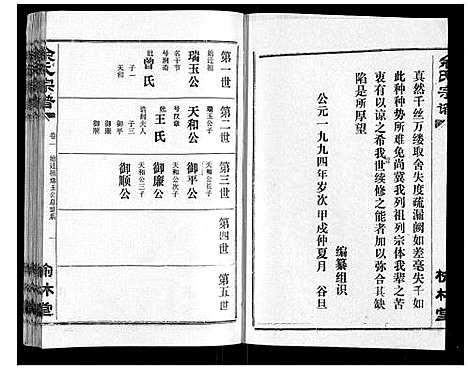 余氏宗谱
真然千丝万缕取舍失度疏漏阙如差毫失千如
此种种势所难免尚冀我列祖列宗体我辈之苦
衷有以谅之希我世续修之能者加以弥合甚其
陷是所厚望
公元一九九四年岁次甲戌仲夏月 谷旦
编纂组织
榆林堂
第一世
始迁祖
瑞玉公
妣曾氏
子一
天和
第二世
瑞玉公子
天和公
号汉章
妣王氏
子三
御平
御廉
御顺
第三世
天和公长子
御平公
天和公次子
御廉公
天和公三子
御顺公
第四世
第五世
余氏宗谱
卷一
榆林堂